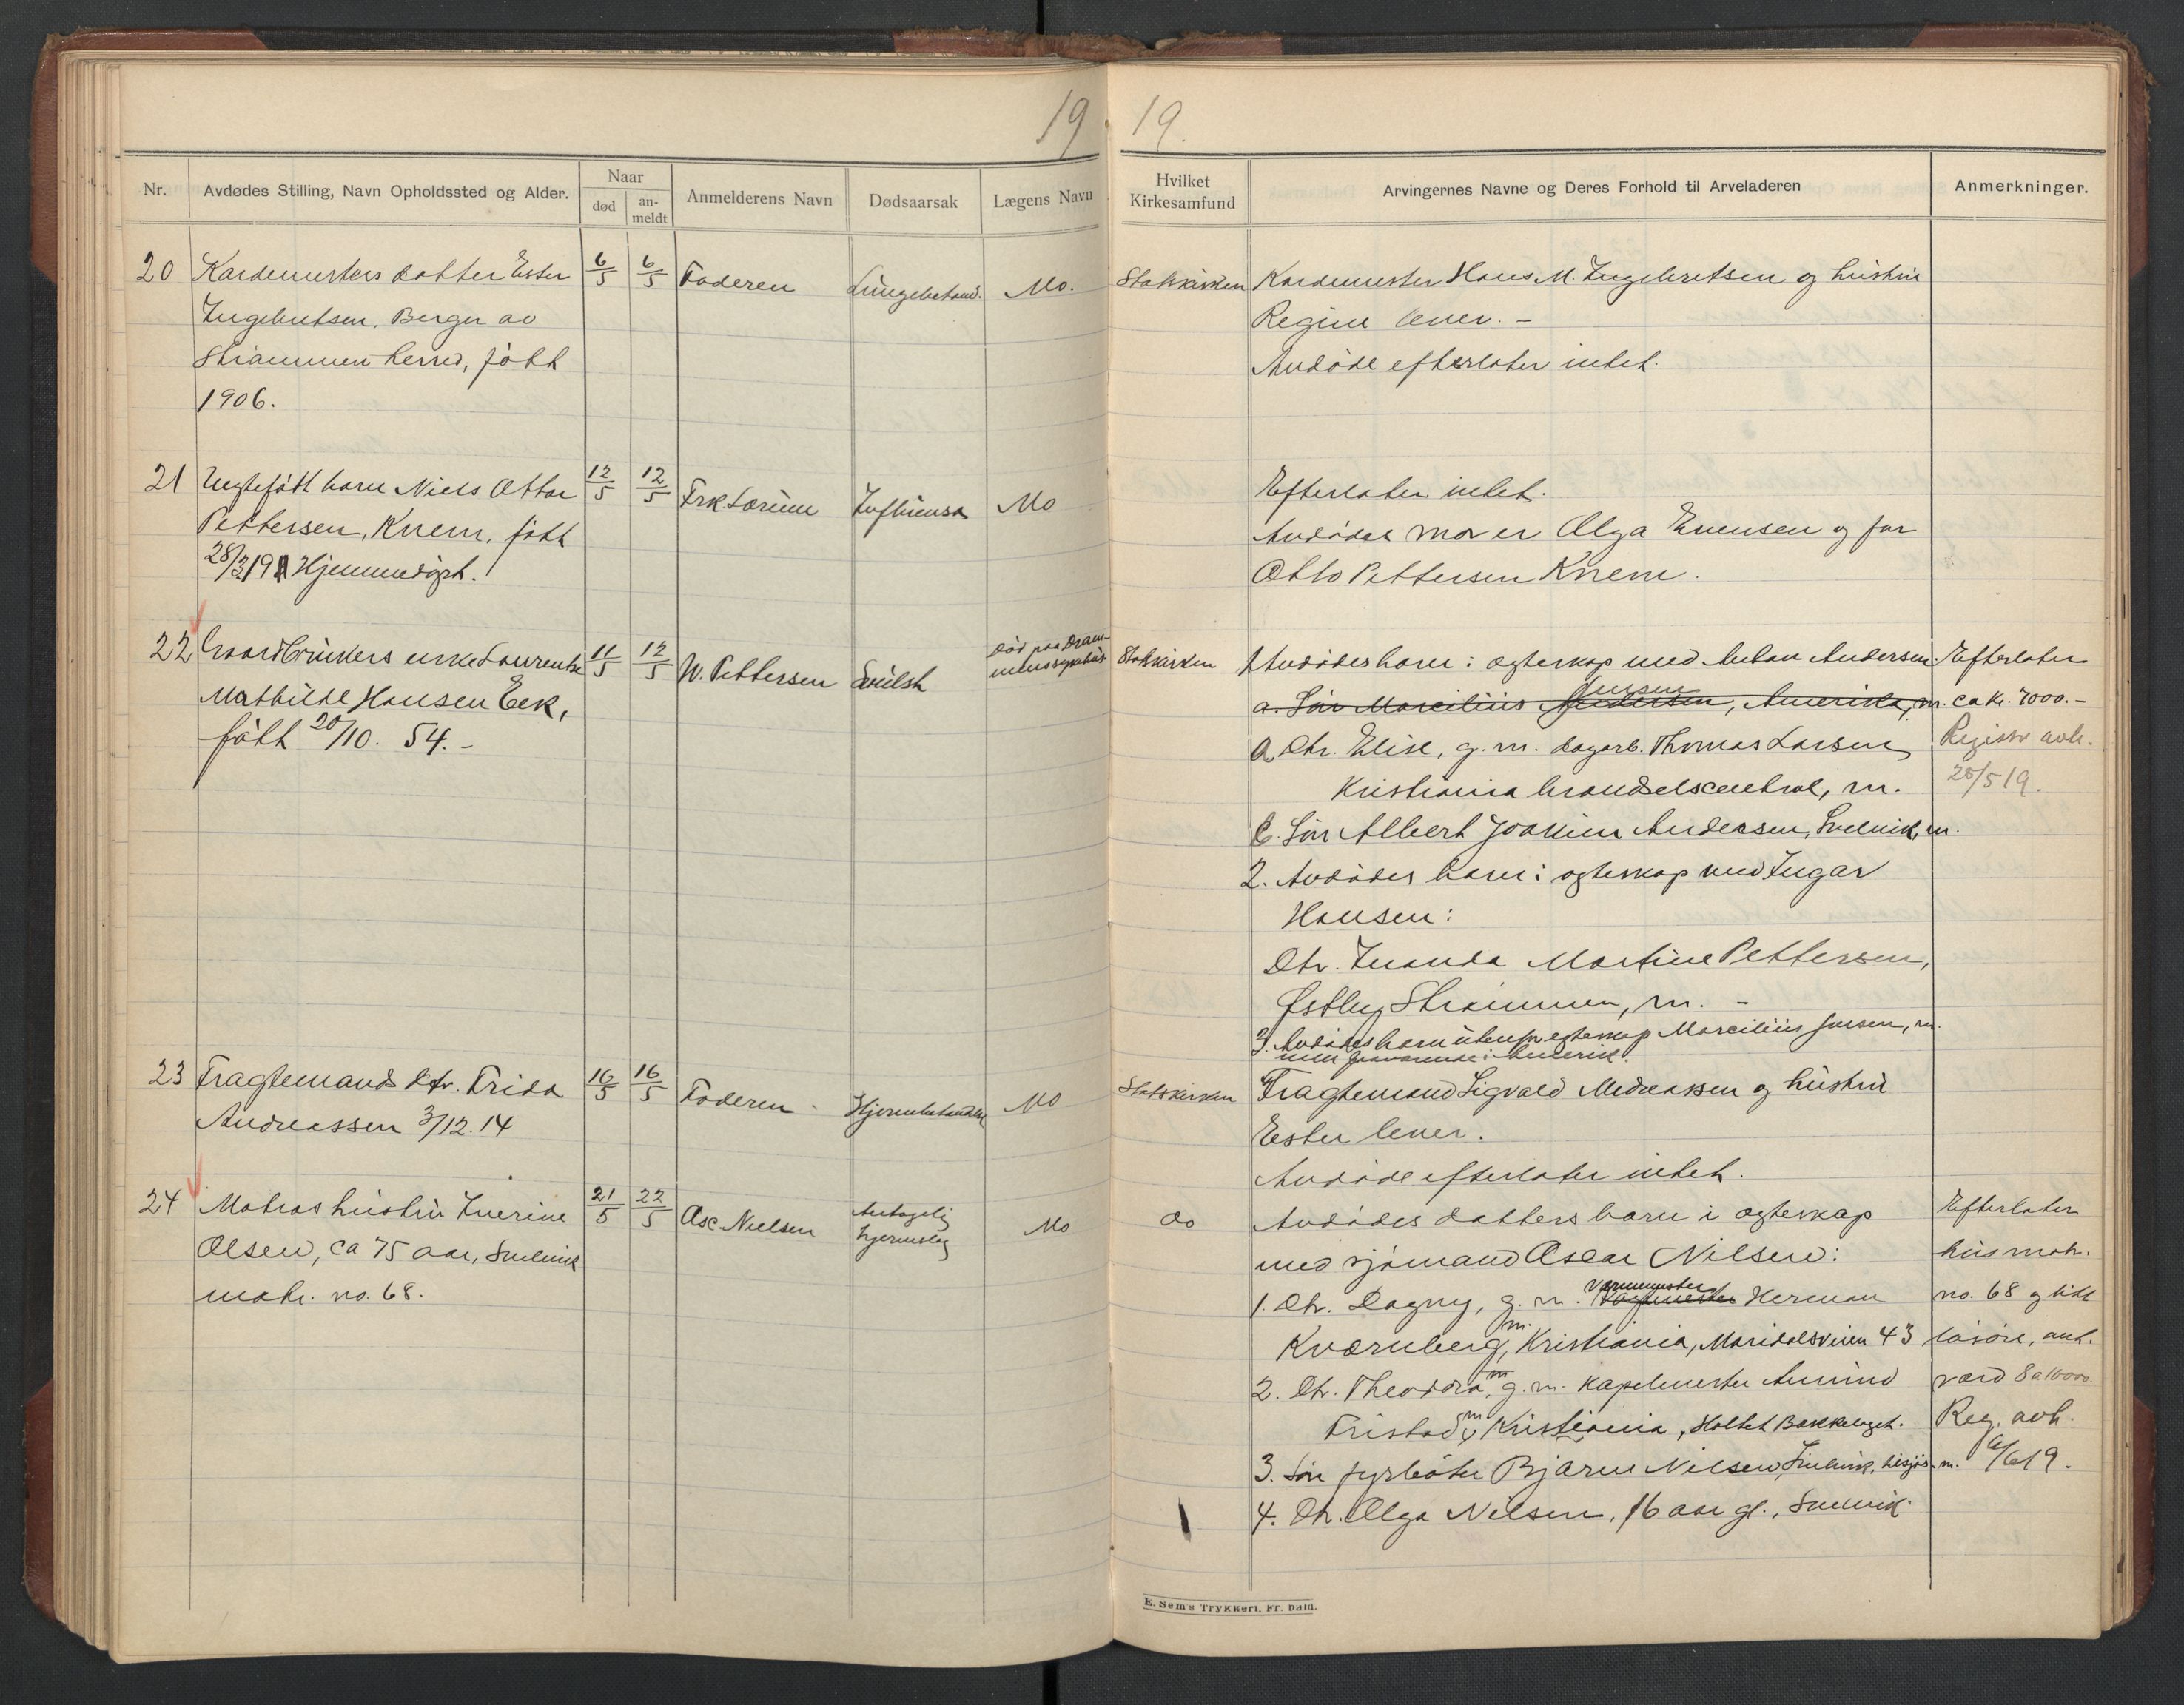 19
Nr.
Avdødes Stilling, Navn Opholdssted og Alder.
Naar
død
an-
meldt
Anmelderens Navn
Dødsaarsak
Lægens Navn
20
Kardemesters datter Ester
Ingebretsen, Berger av
Strømmen herred, født
1906.
6/5
6/5
Faderen
Lungebetænd.
Mo.
21
Uegtefødt barn Niels Ottar
Pettersen, Knem, født
28/3 19 Hjemmedøpt.
12/5
12/5
Frk Lorum
Influensa
Mo
22
Gaardbrukers enke Laurentze
Mathilde Hansen Eek,
født 20/10. 54.-
11/5
12/5
W. Pettersen
Svulst
Død paa Dram-
menssykehus
23
Fragtemands dtr. Frida
Andreassen 3/12. 14
16/5
16/5
Faderen
Hjernebetændelse
Mo
24
Matros hustru Inerine
Olsen, ca 75 aar, Svelvik
matr. no. 68.
21/5
22/5
Osc. Nielsen
Antagelig
hjerneslag
Mo
19.
Hvilket
Kirkesamfund
Arvingernes Navne og Deres Forhold til Arveladeren
Anmerkninger.
Statskirken
Kardemester Hans M. Ingebretsen og hustru
Regine lever. -
Avdøde efterlater intet.
Efterlater intet.
Avdødes mor er Olga Evensen og far
Otto Pettersen Knem.
Statskirken
1 Avdødes barn i egteskap med Anton Andersen:
Jensen
a. Søn Marcilius Andersen, Amerika, m.
a Dtr. Elise, g. m. dagarb. Thomas Larsen,
Kristiania brændselscentral, m.
b. Søn Albert Joakim Andersen, Svelvik, m.
2. Avdødes barn i egteskap med Ingar
Hansen:
Dtr. Inanda Martine Pettersen,
Østby, Strømmen, m. -
3. Avdødes barn utenfor egteskap Marcilius Jensen, m.
nu fraværende i Amerika.
Efterlater
ca kr. 7000.-
Registr avh.
28/5 19.
Statskirken
Fragtemand Sigvald Andreassen og hustru
Ester lever.
Avdøde efterlater intet.
do
Avdødes datters barn i egteskap
med sjømand Oscar Nilsen:
Varmemester
1. Dtr. Dagny, g. m. Herman
m.
Kværnberg, Kristiania, Maridalsveien 43
m
2. Dtr. Theodora, g. m. Kapelmester Amund
m
Fristad, Kristiania, Holtet Bækkelaget.
3. Søn fyrbøter Bjarne Nilsen, Svelvik, tilsjøs. m.
4. Dtr. Olga Nilsen, 16 aar gl., Svelvik.
Efterlater
hus matr.
no. 68 og litt
løsøre, ant.
værd 8 a 10000.
Reg. avh.
6/6 19.
E. Sem's Trykkeri, Fr. hald.